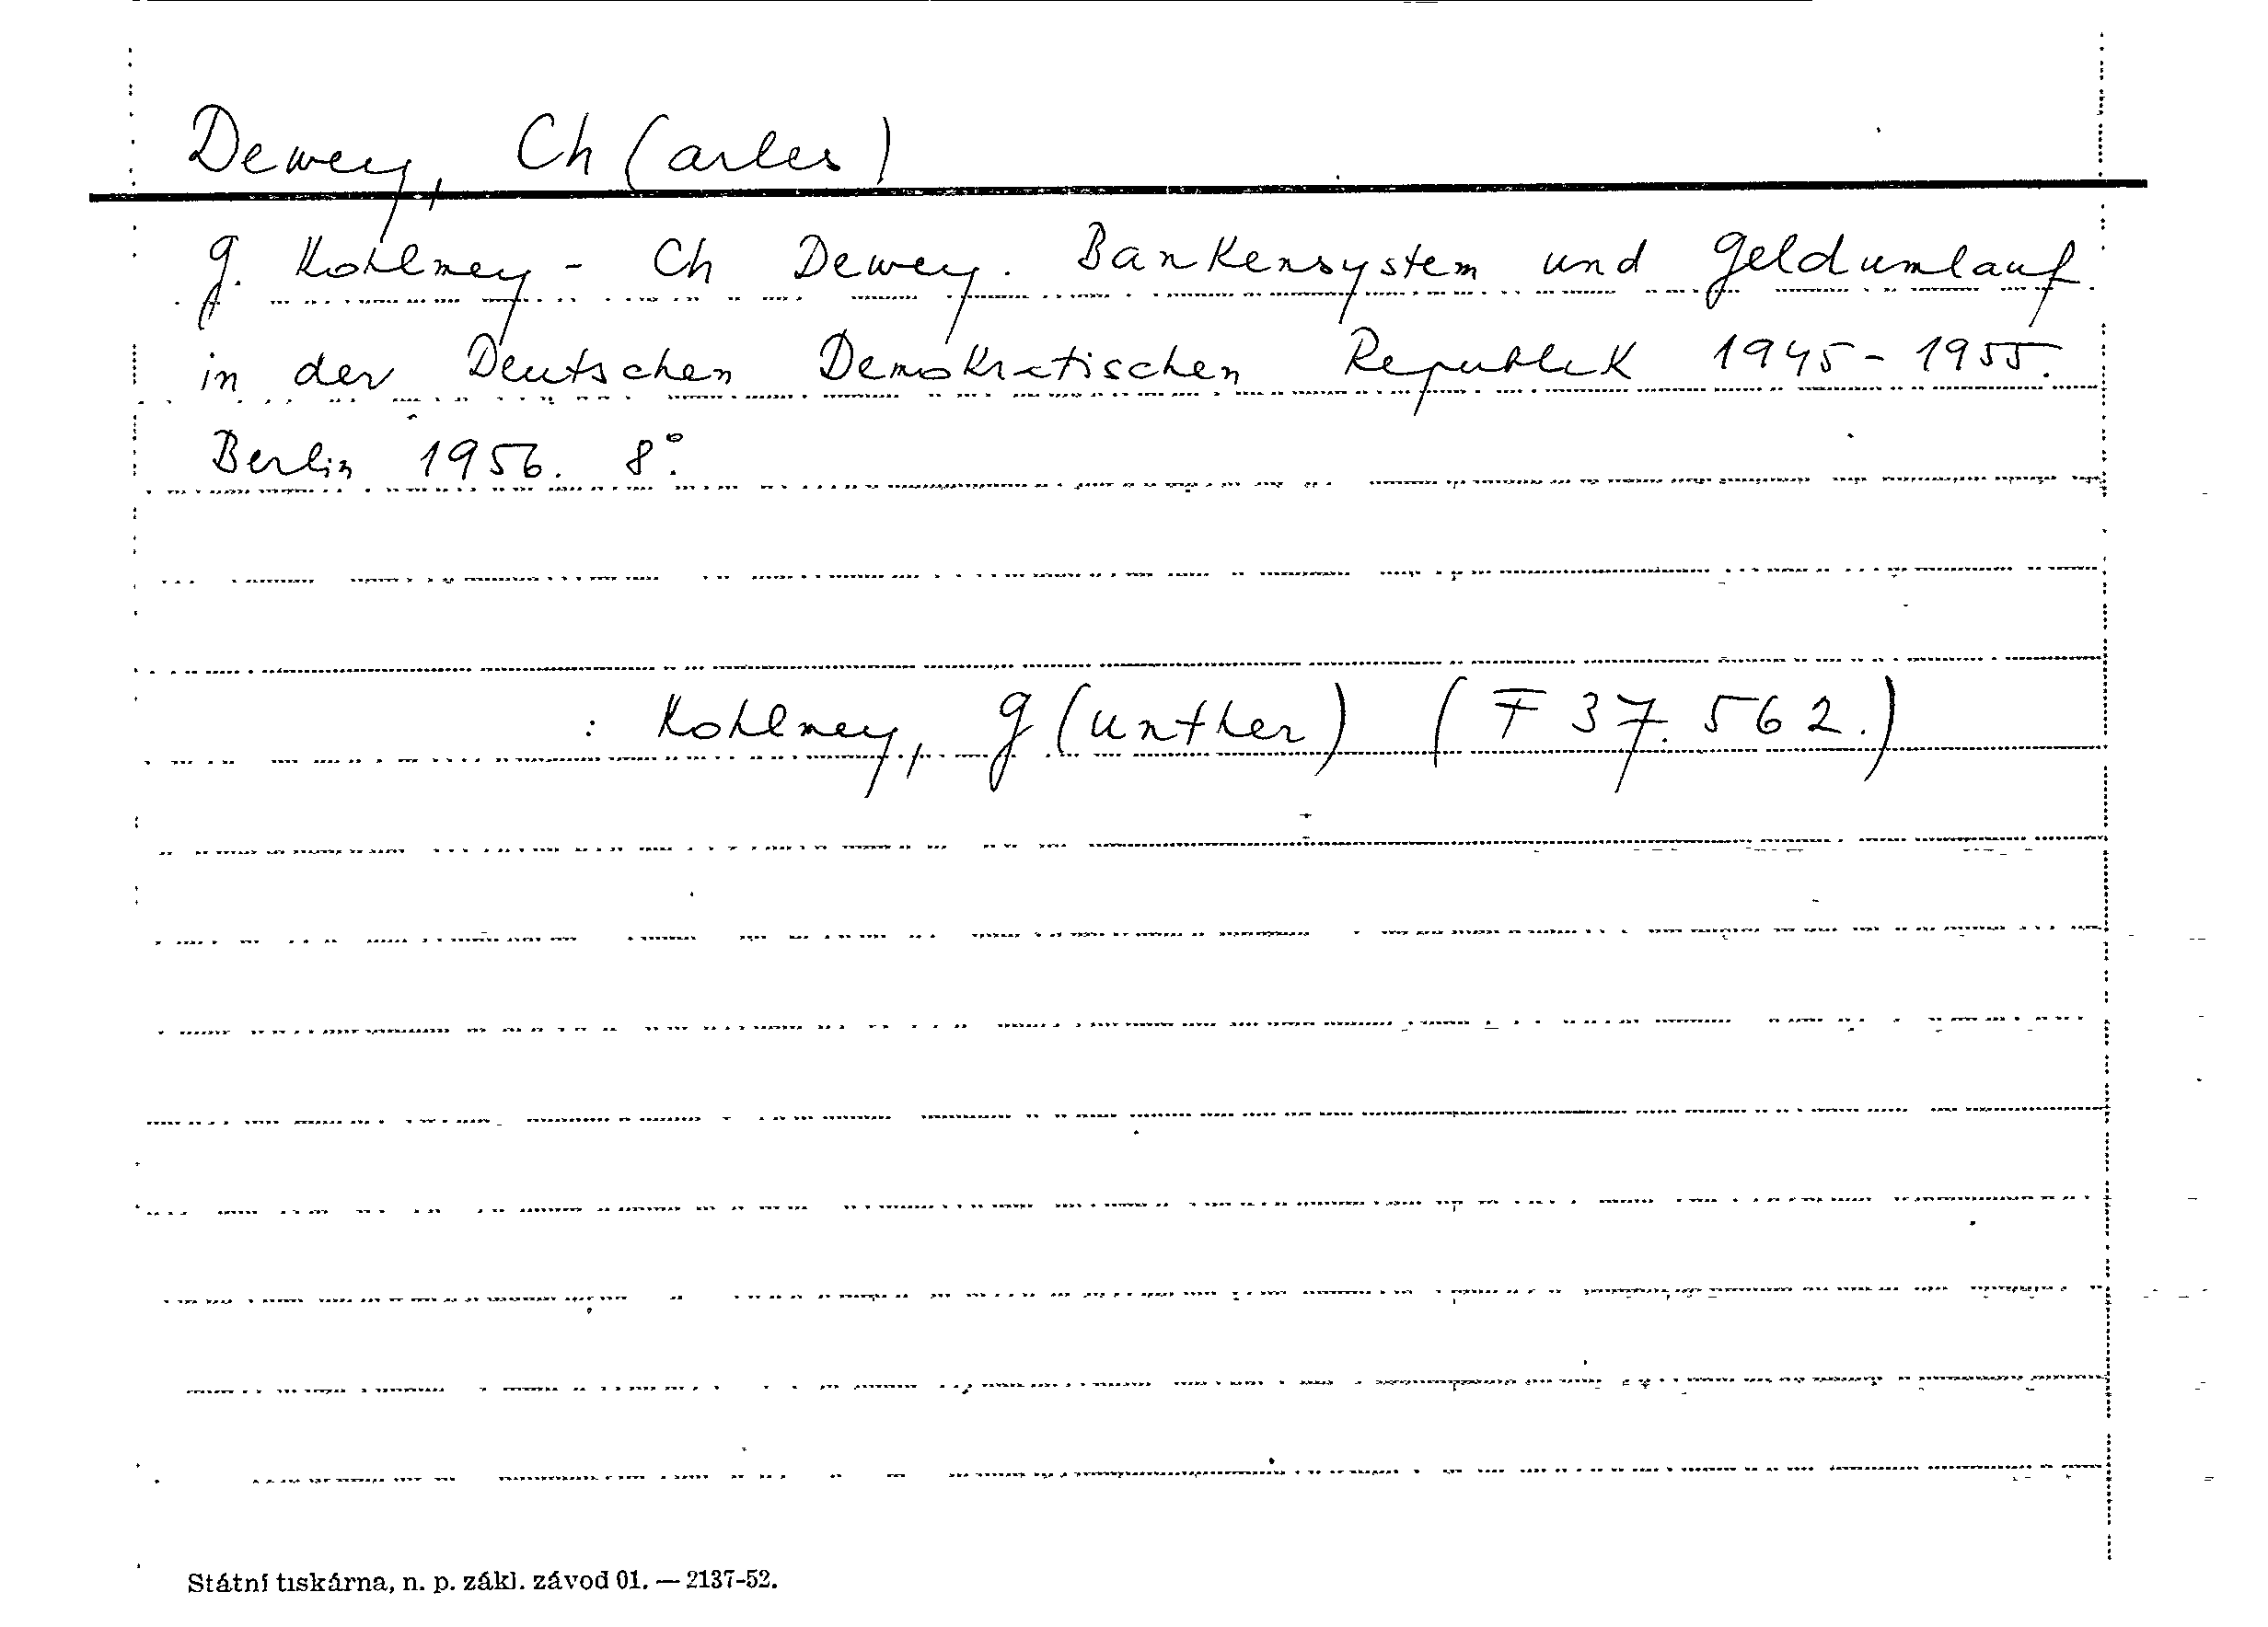 Dewey, Ch(arles)
G. Kohlmey - Ch Dewey. Bankensystem und Geldumlauf
in der Deutschen Demokratischen Republik 1945-1955.
Berlin 1956. 8°.
: Kohlmey, G(unther) (F 37.562.)
Státní tiskárna, n. p. zákl. závod 01. — 2137-52.